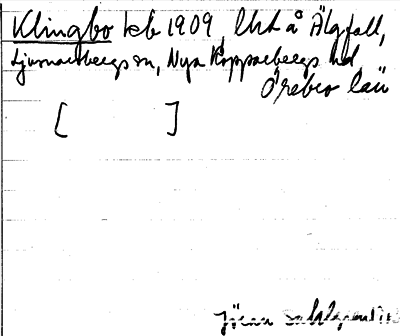 Klingbo kb 1909, lht å Älgfall,
Ljusnarsbergs sn, Nya Kopparbergs hd,
Örebro län
[ ]
Jöran Sahlgren